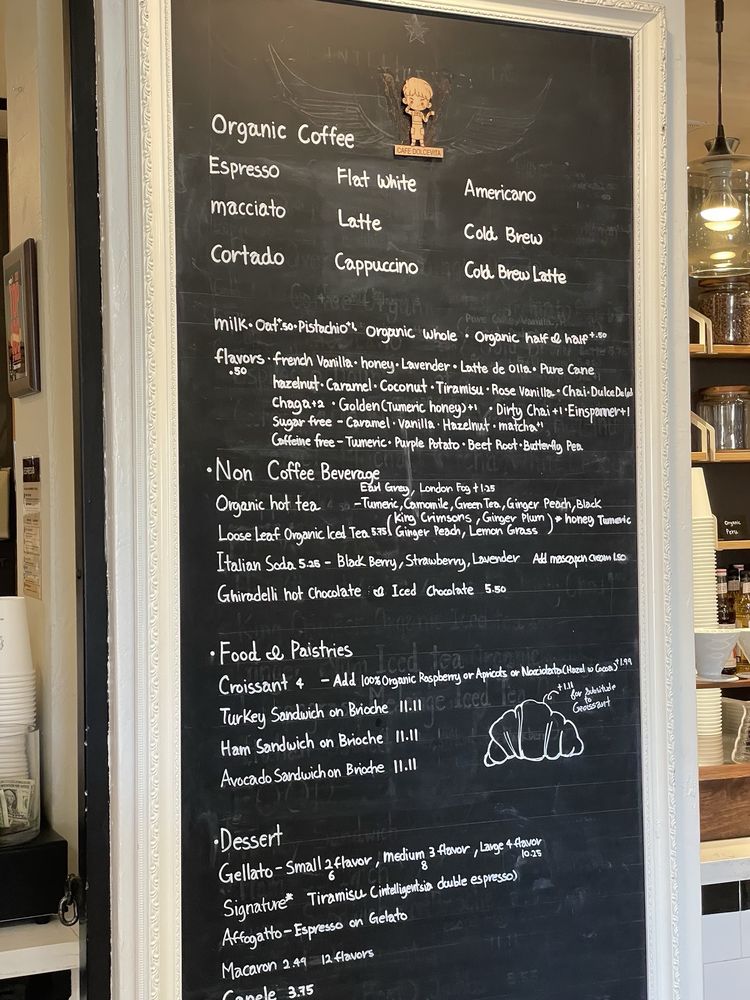 CAFE DOLCEVITA
Organic Coffee
Espresso Flat White Americano
macciato Latte Cold Brew
Cortado Cappuccino Cold Brew Latte
milk · Oat+.50 · Pistachio+1 Organic whole · Organic half & half+.50
flavors · french Vanilla · honey · Lavender · Latte de olla · Pure Cane
.50 hazelnut · Caramel · Coconut · Tiramisu · Rose Vanilla · Chai · Dulce De
Chaga+2 · Golden (Tumeric honey)+1 · Dirty Chai+1 · Einspanner+1
Sugar free - Caramel · Vanilla · Hazelnut · matcha+1
Caffeine free - Tumeric · Purple Potato · Beet Root · Butterfly Pea
· Non Coffee Beverage
Earl Grey, London Fog +1.25
Organic hot tea - Tumeric, Camomile, Green Tea, Ginger Peach, Black
Loose Leaf Organic Iced Tea 5.75 (King Crimsons, Ginger Plum) * honey Tumeric
Ginger Peach, Lemon Grass
Italian Soda 5.25 - Black Berry, Strawberry, Lavender Add Cream 1.50
Ghiradelli hot Chocolate & Iced Chocolate 5.50
· Food & Paistries
Croissant 4 - Add 100% Organic Raspberry or Apricots or Nocciolata (Hazel w Cocoa)+1.99
+1.11 for Substitute to Croissant
Turkey Sandwich on Brioche 11.11
Ham Sandwich on Brioche 11.11
Avocado Sandwich on Brioche 11.11
· Dessert
Gellato - Small 2 flavor, Medium 3 flavor, Large 4 flavor
6 8 10.25
Signature* Tiramisu (intelligentsia double espresso)
Affogatto - Espresso on Gelato
Macaron 2.49 12 flavors
Canele 3.75